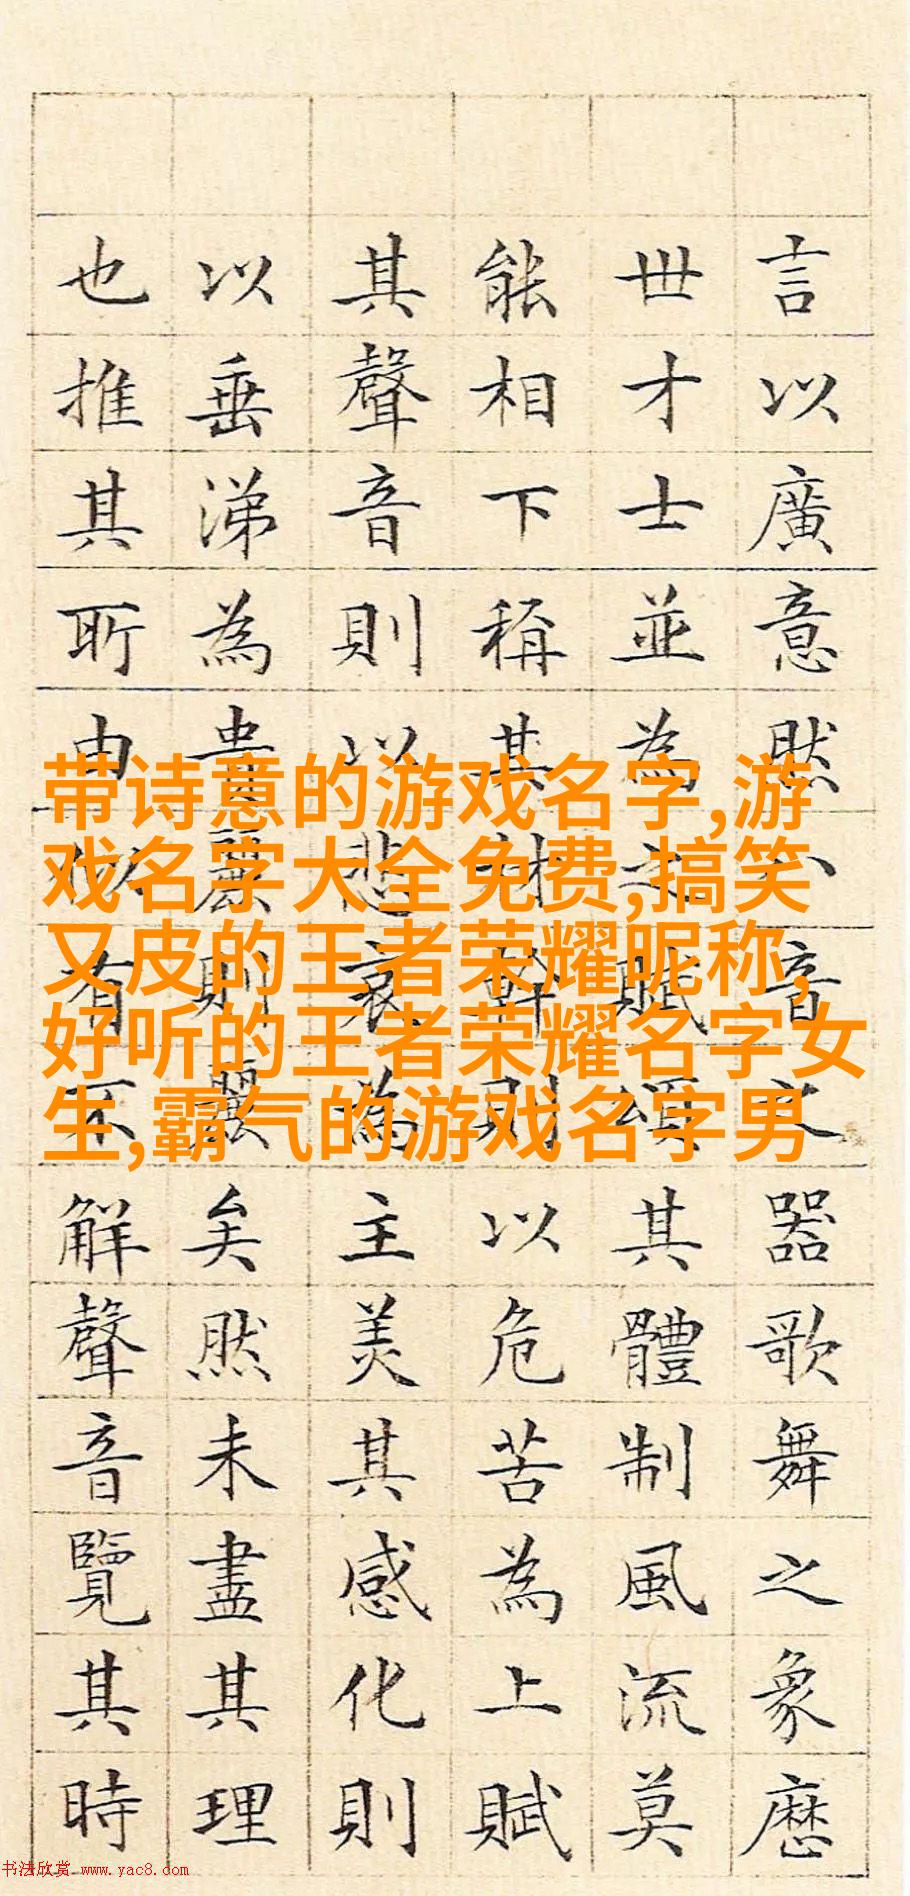 言以廣意然八音之器歌舞之象歷
世才士並為之賦頌其體制風流莫
能相下稱其材幹則以危苦為上賦
其聲音則以悲哀為主美其感化則
以垂涕為貴麗則麗矣然未盡其理
也推其所由似有不解聲音覽其時
带诗意的游戏名字,游
戏名字大全免费,搞笑
又皮的王者荣耀昵称,
好听的王者荣耀名字女
生,霸气的游戏名字男
书法欣赏 www.yac8.com